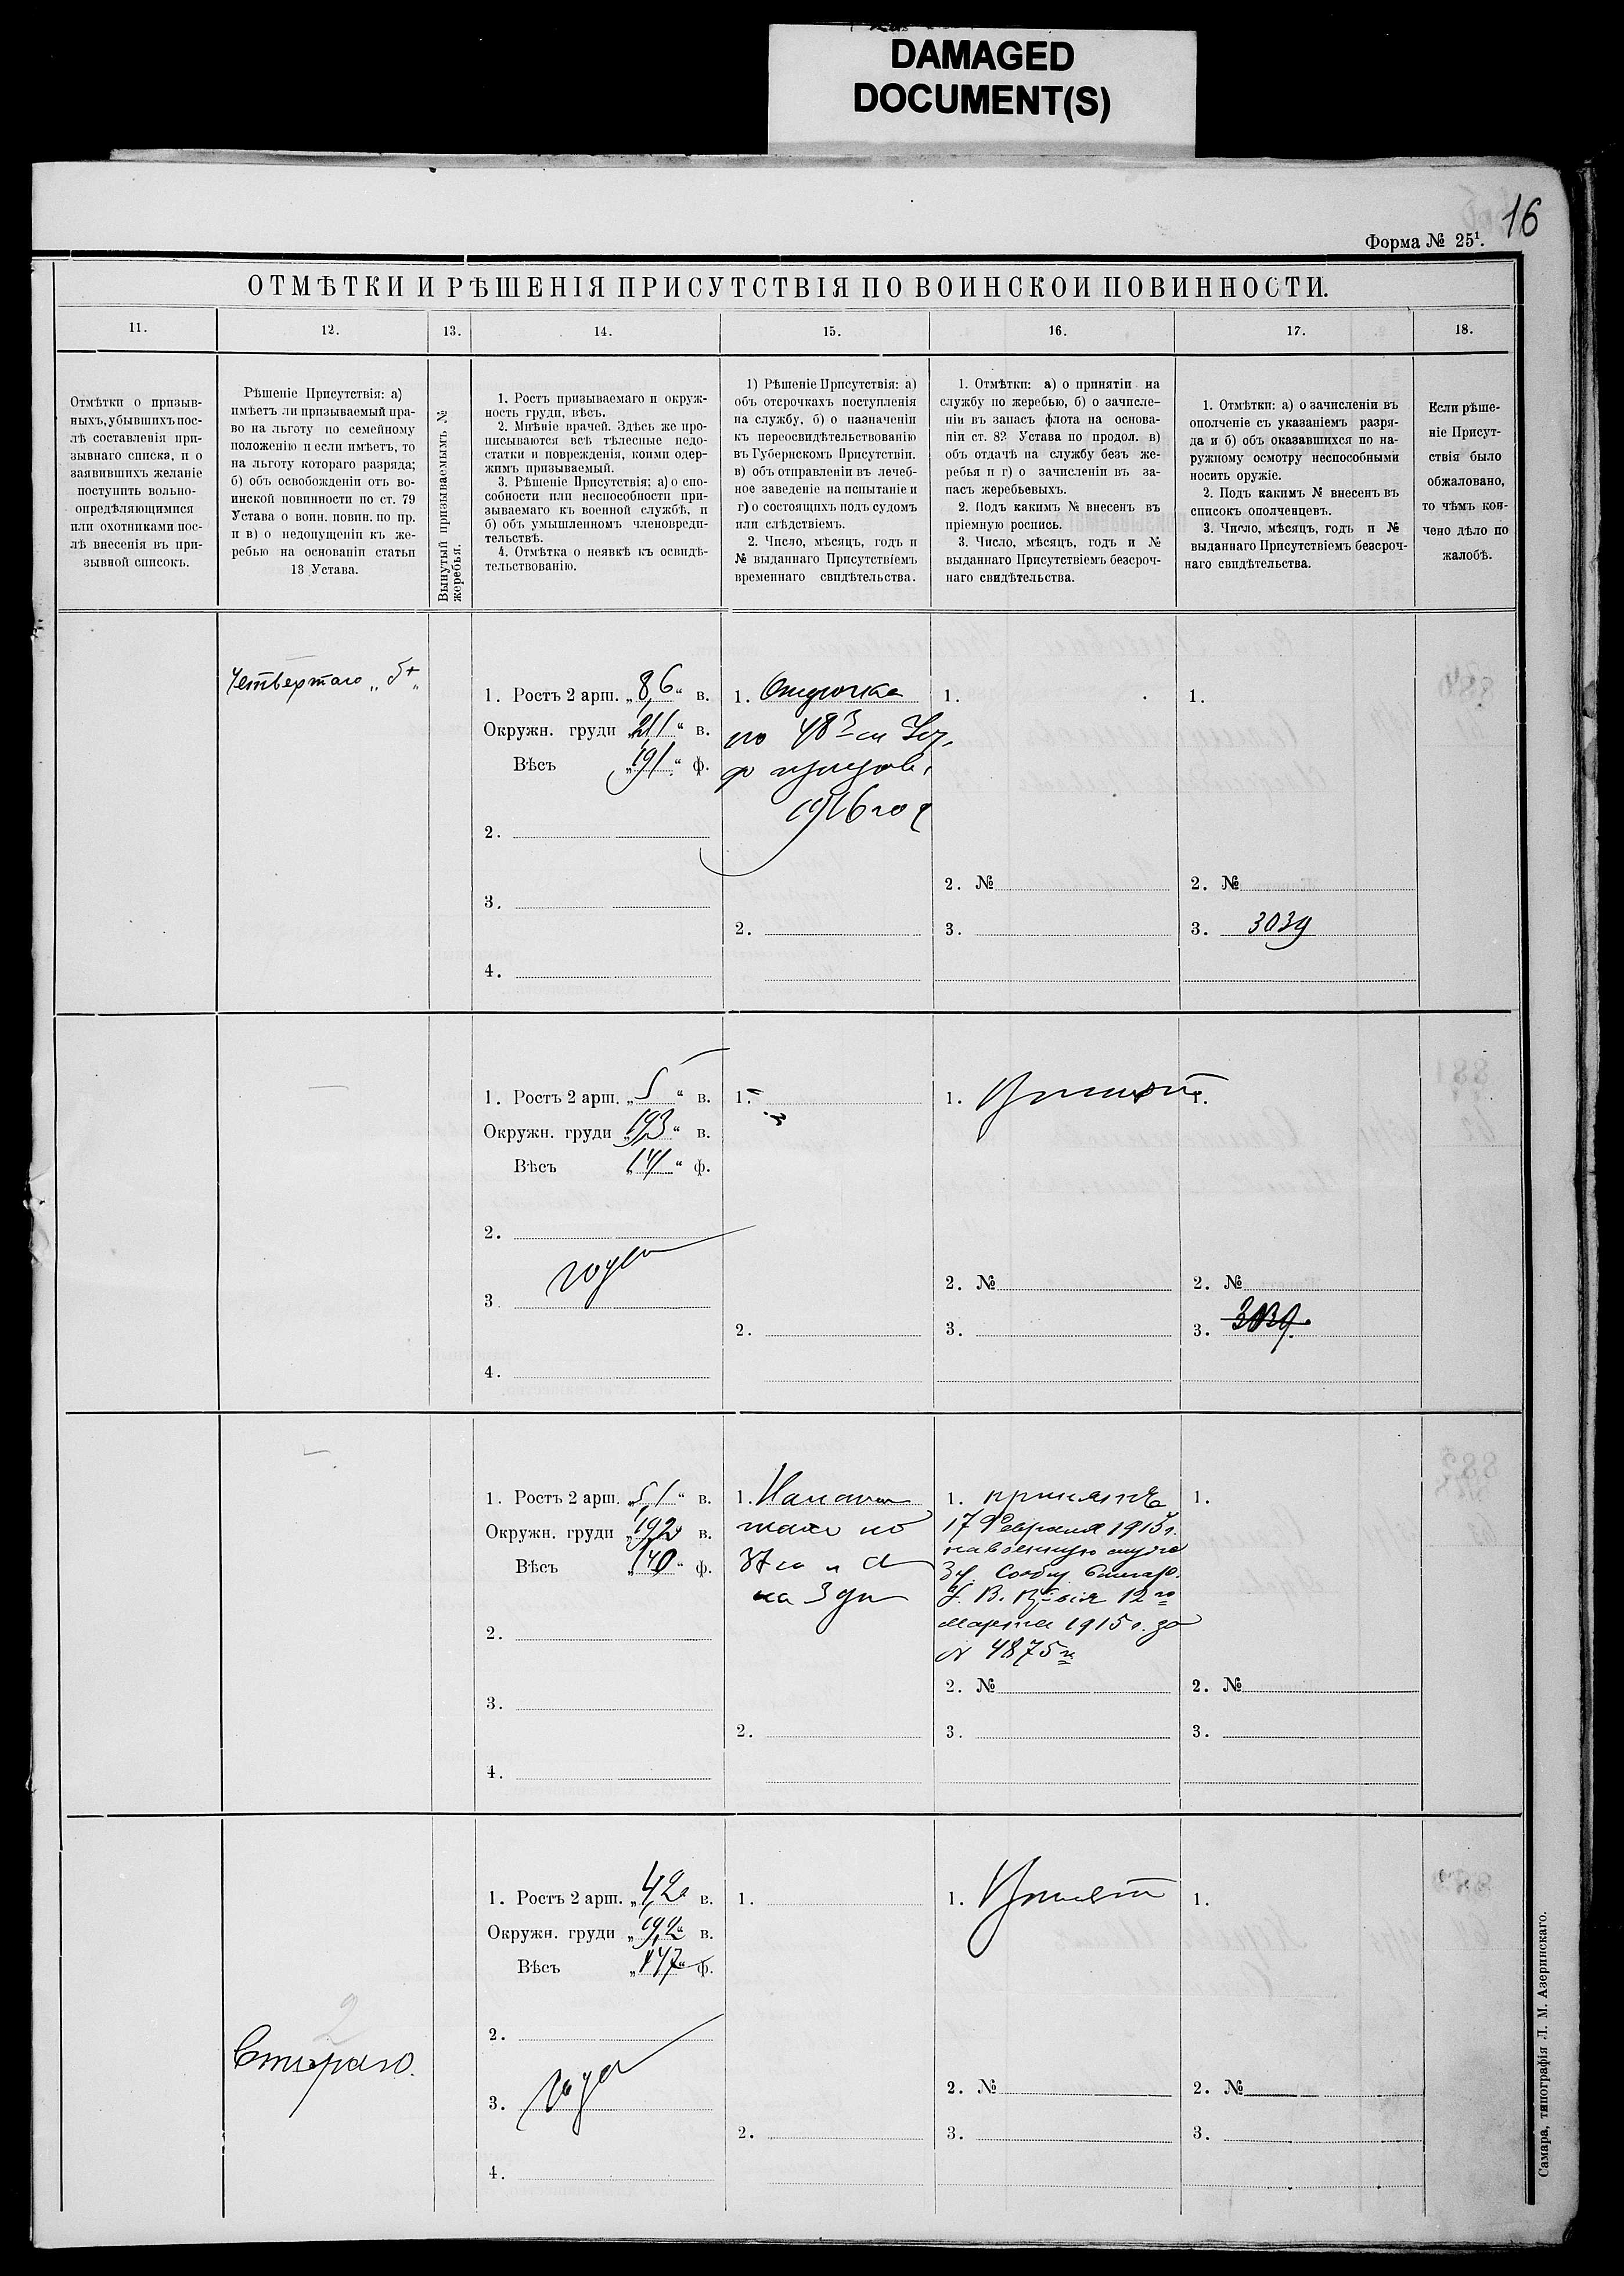 DAMAGED
DOCUMENT(S)
16
Форма № 25¹.
ОТМѢТКИ И РѢШЕНІЯ ПРИСУТСТВІЯ ПО ВОИНСКОЙ ПОВИННОСТИ.
11.
12.
13.
14.
15.
16.
17.
18.
Отмѣтки о призыв-
ныхъ, убывшихъ пос-
лѣ составленія при-
зывнаго списка, и о
заявившихъ желаніе
поступить вольно-
опредѣляющимися
или охотниками пос-
лѣ внесенія въ при-
зывной списокъ.
Рѣшеніе Присутствія: а)
имѣетъ ли призываемый пра-
во на льготу по семейному
положенію и если имѣетъ, то
на льготу котораго разряда;
б) объ освобожденіи отъ во-
инской повинности по ст. 79
Устава о воин. повин. по пр.
и в) о недопущеніи къ же-
ребью на основаніи статьи
13 Устава.
Вынутый призываемымъ №
жеребья.
1. Ростъ призываемаго и окруж-
ность груди, вѣсъ.
2. Мнѣніе врачей. Здѣсь же про-
писываются всѣ тѣлесные недо-
статки и поврежденія, коими одер-
жимъ призываемый.
3. Рѣшеніе Присутствія: а) о спо-
собности или неспособности при-
зываемаго къ военной службѣ, и
б) объ умышленномъ членовреди-
тельствѣ.
4. Отмѣтка о неявкѣ къ освидѣ-
тельствованію.
1) Рѣшеніе Присутствія: а)
объ отсрочкахъ поступленія
на службу, б) о назначеніи
къ переосвидѣтельствованію
въ Губернскомъ Присутствіи.
в) объ отправленіи въ лечеб-
ное заведеніе на испытаніе и
г) о состоящихъ подъ судомъ
или слѣдствіемъ.
2. Число, мѣсяцъ, годъ и
№ выданнаго Присутствіемъ
временнаго свидѣтельства.
1. Отмѣтки: а) о принятіи на
службу по жеребью, б) о зачисле-
ніи въ запасъ флота на основа-
ніи ст. 82 Устава по продол. в)
объ отдачѣ на службу безъ же-
ребья и г) о зачисленіи въ за-
пасъ жеребьевыхъ.
2. Подъ какимъ № внесенъ въ
пріемную роспись.
3. Число, мѣсяцъ, годъ и №
выданнаго Присутствіемъ безсроч-
наго свидѣтельства.
1. Отмѣтки: а) о зачисленіи въ
ополченіе съ указаніемъ разря-
да и б) объ оказавшихся по на-
ружному осмотру неспособными
носить оружіе.
2. Подъ какимъ № внесенъ въ
списокъ ополченцевъ.
3. Число, мѣсяцъ, годъ и №
выданнаго Присутствіемъ безсроч-
наго свидѣтельства.
Если рѣше-
ніе Присут-
ствія было
обжаловано,
то чѣмъ кон-
чено дѣло по
жалобѣ.
Четвертаго
1. Ростъ 2 арш. „8,6“ в.
Окружн. груди „21/“ в.
Вѣсъ „191“ ф.
2.
3.
4.
1. Отсрочка
по 48
1916 год
2.
1.
2. №
3.
1.
2. №
3. 3039
1. Ростъ 2 арш. „5“ в.
Окружн. груди „19,3“ в.
Вѣсъ „141“ ф.
2.
годен
3
4.
1.
2.
1. Принят
2. №
3.
1.
2. №
3. 3039.
1. Ростъ 2 арш. „5/“ в.
Окружн. груди „19,2“ в.
Вѣсъ „140“ ф.
2.
3.
4.
1.
на 3 дн
2.
1. принятъ
17 Февраля 1915 г.
на военную
12го
марта 1915 г. за
№ 4875
2. №
3.
1.
2. №
3.
Втораго.
2
1. Ростъ 2 арш. „4,2“ в.
Окружн. груди „19,2“ в.
Вѣсъ „147“ ф.
2.
3. годен
4.
1.
2.
1. Принят
2. №
3.
1.
2. №
3.
Самара, типографія Л. М. Азеринскаго.